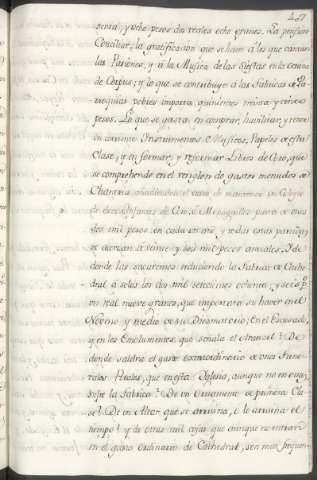 senta, y ocho pesos dos reales ocho granos. La pension
Conciliar, la gratificacion que se hace à los que cantan
las Pasiones, y à la Musica de las Siestas en la octava
de Corpus; y lo que se contribuye à las Fabricas de Pa-
rroquias pobres importa quinientos treinta y cinco
pesos. Lo que se gasta en comprar, habilitar, y tener
en corriente Instrumentos de Musicos, Papeles de esta
Clase, y en formar, y reformar Libros de Coro, que
se comprehende en el renglon de gastos menudos de
Chantria añadiendose el de mantener un Colegio
de Infantes de Coro, ò Monaguillos pasa de
tos mil pesos en cada un año, y todas estas partidas
se acercan à veinte y seis mil pesos anuales. Y de
donde las sacaremos reducida la Fabrica de Cathe-
dral à solos los dos mil setecientos ochenta y seis p.
un real nueve granos, que importaria su haver en el
Noveno y medio de su Decimatorio; En el Escusado,
y en los Emolumentos que señala el Arancel? De
donde saldrà el gasto extraordinario de unos Fune-
rales Reales, que en esta Yglesia, aunque no en otras
sufre la Fabrica? De un Ornamento de primera Cla-
se? De un Altar que se arruina, ò lo arruina el
tiempo? y de otras mil cosas que aunque no entran
en el gasto Ordinario de Cathedral, son mui frequen-